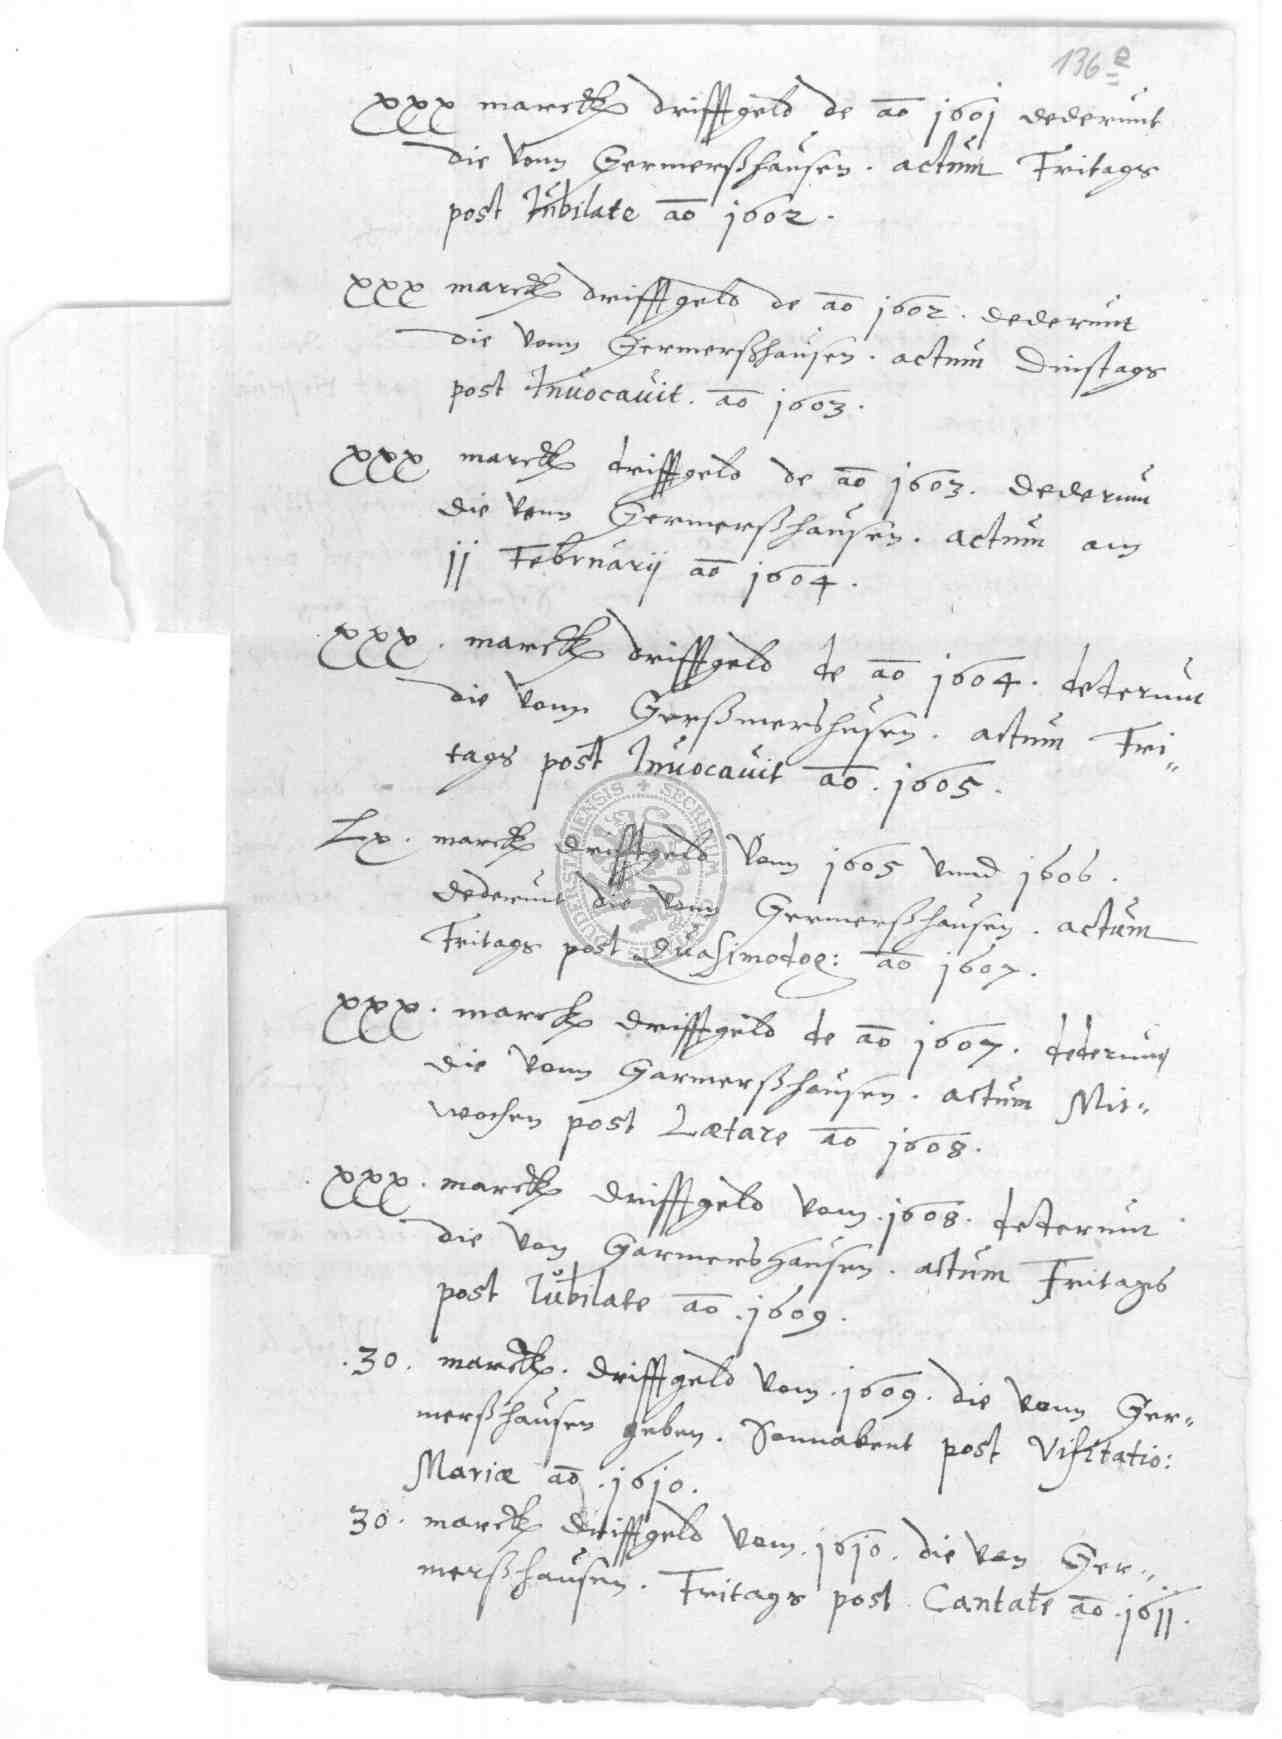 136e
xxx marck drifftgeld de ao 1601 dederunt
die vonn Germerßhausen. actum Fritags
post Iubilate ao 1602.
xxx marck drifftgeld de ao 1602. dederunt
die vonn Germerßhausen. actum Dinstags
post Invocavit. ao 1603.
xxx marck drifftgeld de ao 1603. dederunt
die vonn Germerßhausen. actum am
11 Februarij ao 1604.
xxx. marck drifftgeld de ao 1604. dederunt
die vonn Gerßmershusen. actum Fri-
tags post Invocavit ao. 1605.
Lx. marck drifftgeld vonn 1605 vnnd 1606.
dederunt die vonn Germerßhausen. actum
Fritags post Quasimodog: ao 1607.
xxx. marck drifftgeld de ao 1607. dederunt
die vonn Garmerßhausen. actum Mit-
wochen post Lætare ao 1608.
xxx. marck drifftgeld vom. 1608. dederunt
die von Garmershausen. actum Fritages
post Iubilate ao. 1609.
.30. marck. drifftgeld vom. 1609. die vonn Ger-
merßhausen geben. Sonnabent post Visitatio:
Mariæ ao. 1610.
30. marck drifftgeld vom. 1610. die von Ger-
merßhausen. Fritags post Cantate ao. 1611.
SECRETUM